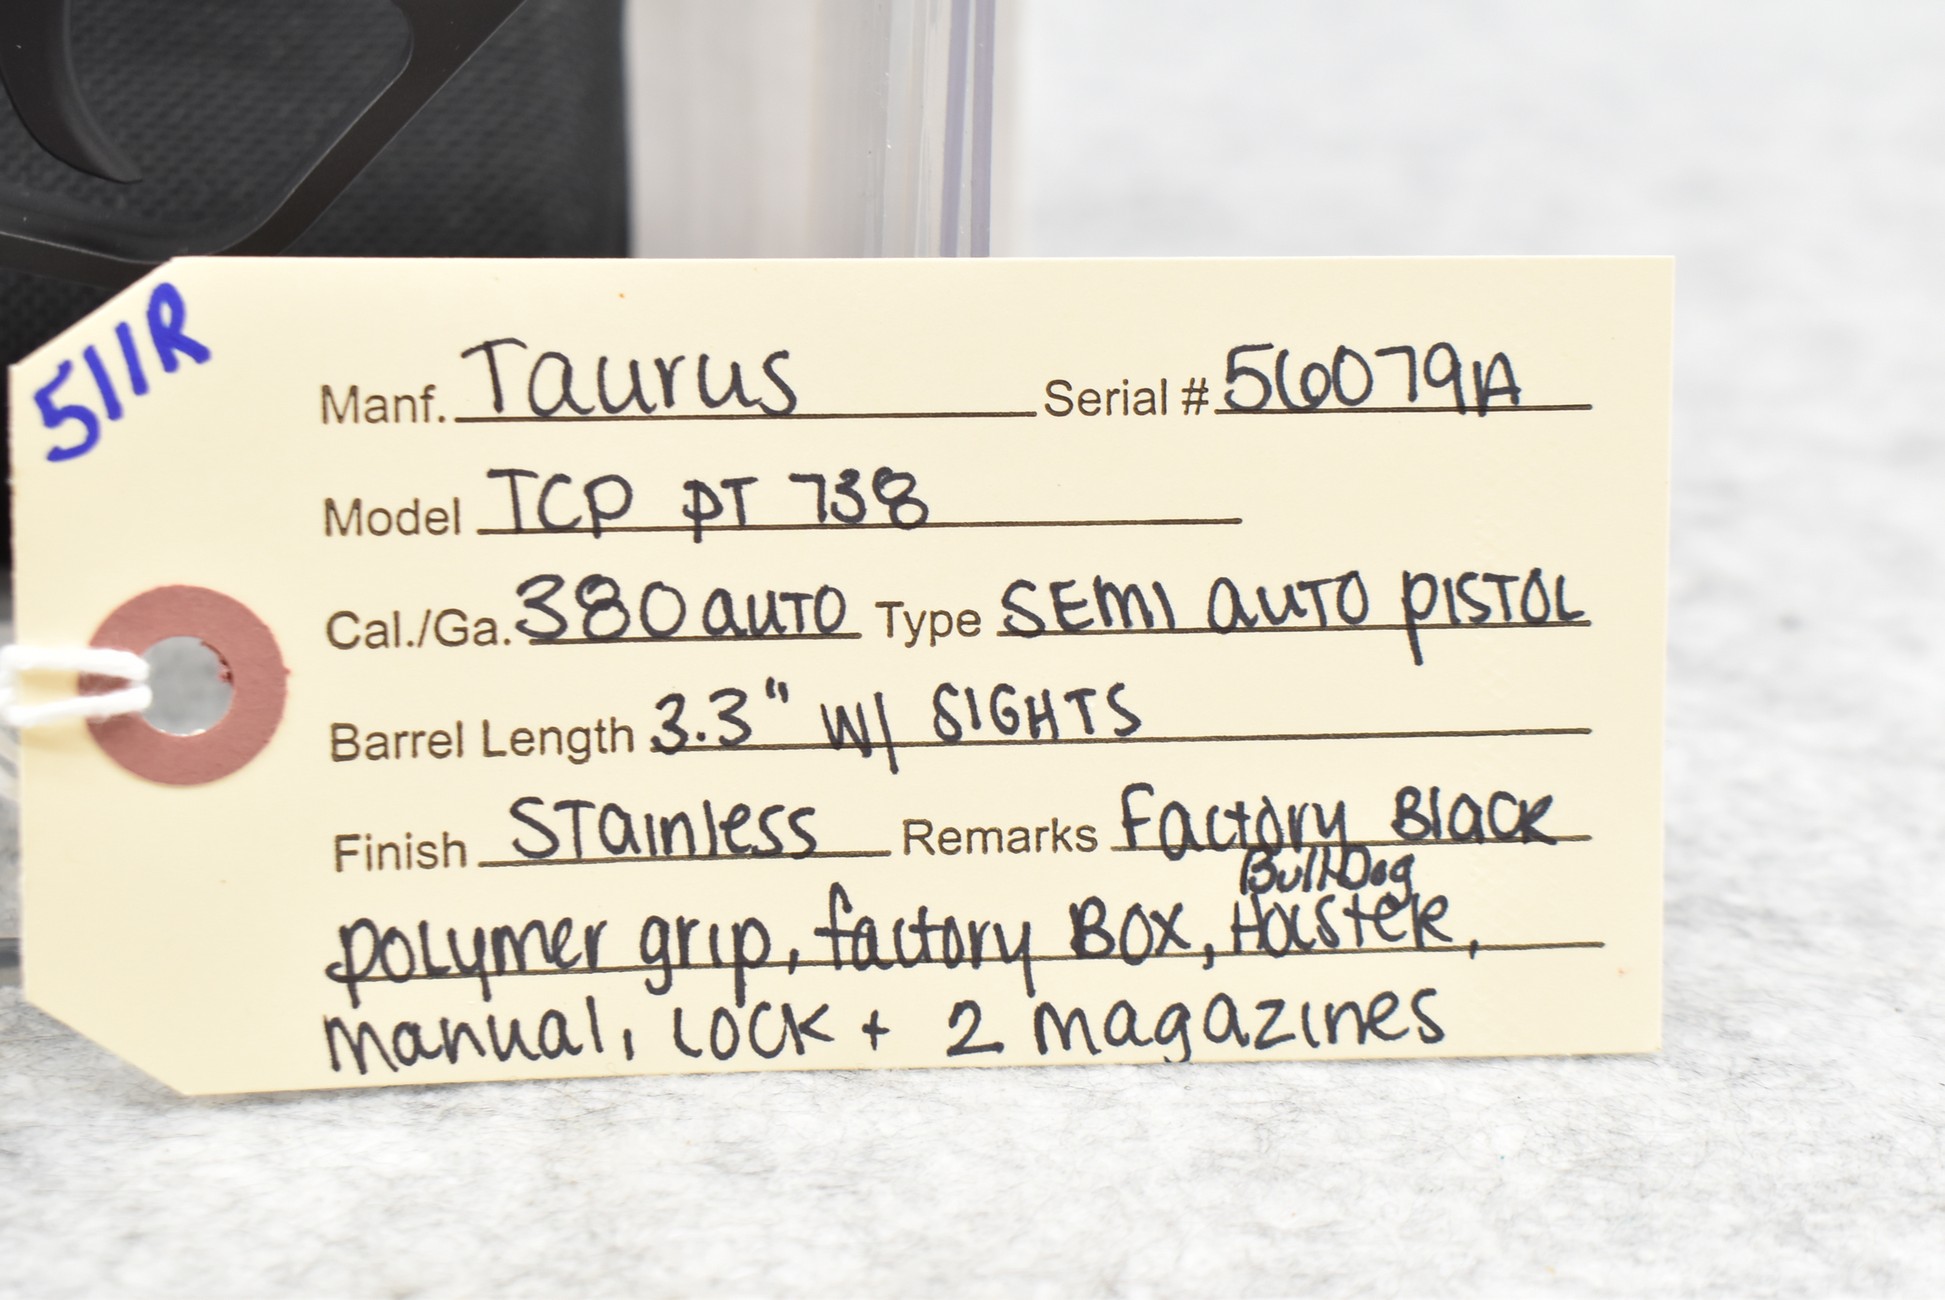 511R
Manf. Taurus Serial # 56079A
Model TCP PT 738
Cal./Ga. 380 auto Type SEMI auTO PISTOL
Barrel Length 3.3" W/ SIGHTS
Finish STainless Remarks Factory Black
BullDog
polymer grip, factory BOX, HOLSTER,
manual, LOCK + 2 magazines